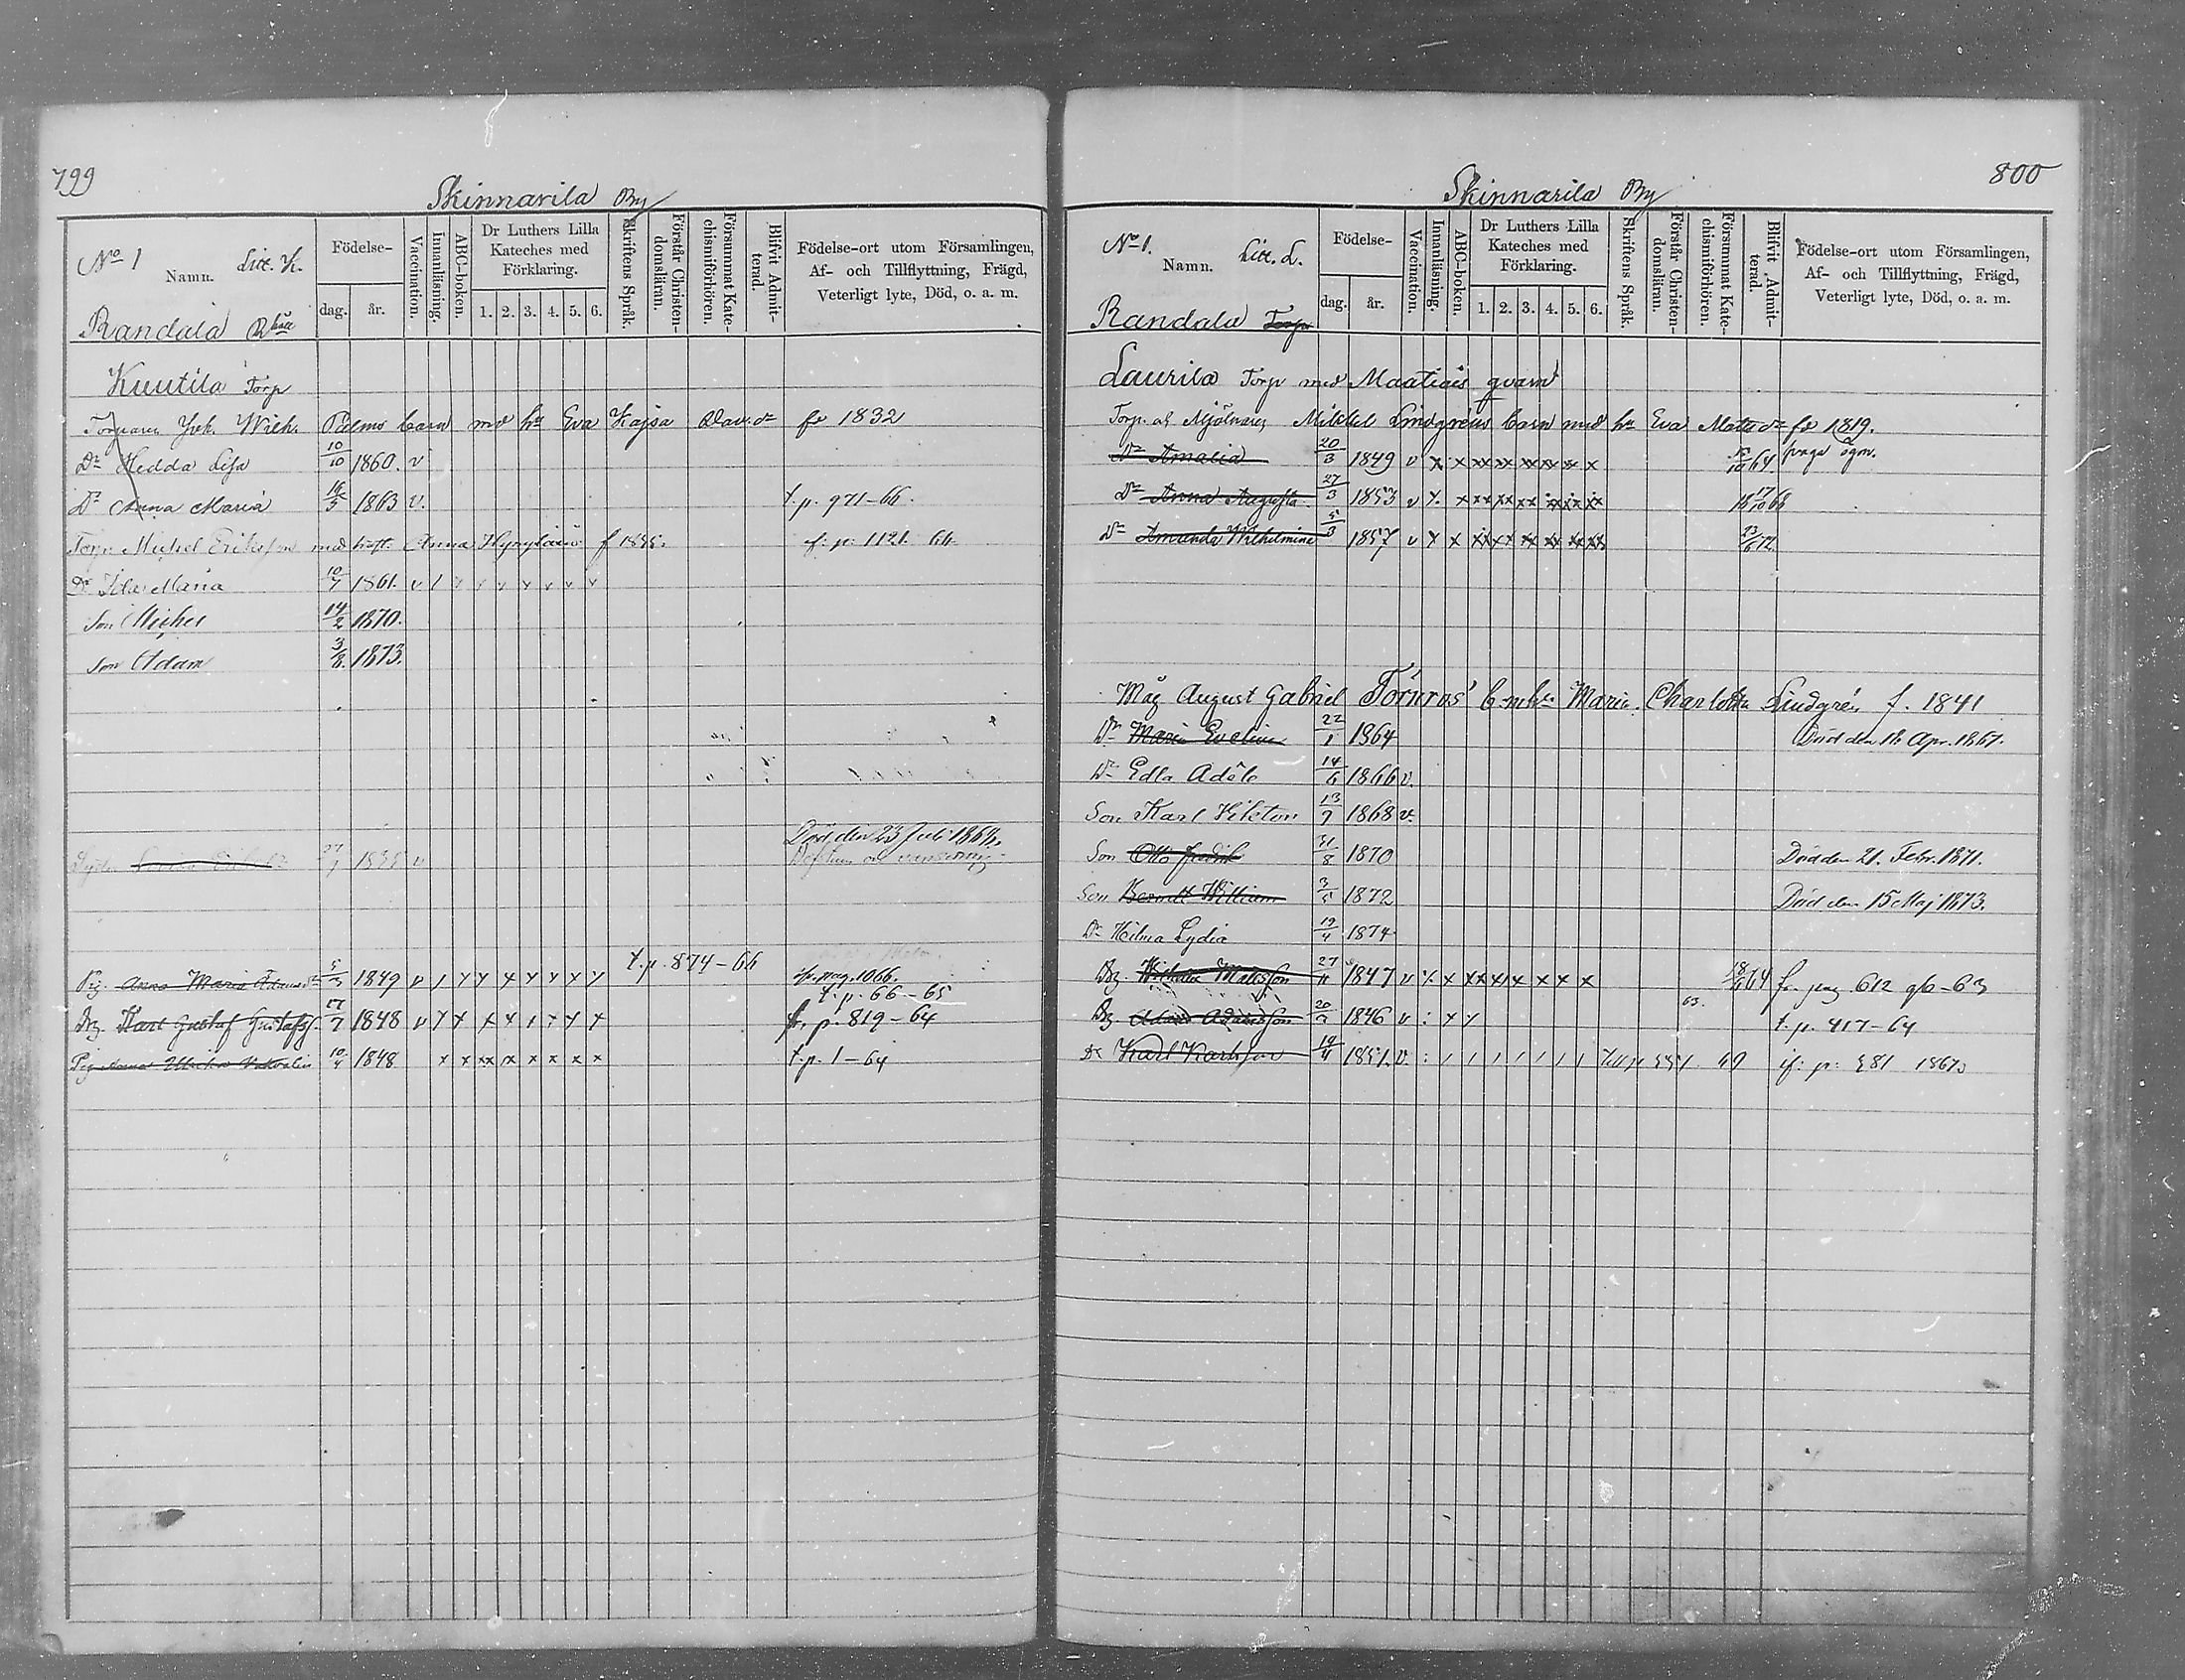 799
Skinnarila By
No 1 Litt. K.
Namn.
Randala
Födelse-
dag. år.
Vaccination.
Innanläsning.
ABC-boken.
Dr Luthers Lilla Kateches med Förklaring.
1. 2. 3. 4. 5. 6.
Skriftens Språk.
Förstår Christen-domsläran.
Försummat Kate-chismiförhören.
Blifvit Admit-terad.
Födelse-ort utom Församlingen,
Af- och Tillflyttning, Frägd,
Veterligt lyte, Död, o. a. m.
Kuutila Torp
Joh. Wilh. Palms barn med hu Eva Kajsa Dav.dr fd 1832
Dr Hedda Lisa 10/10 1860. v
Dr Anna Maria 1863 v. t. p. 971-66.
Torp. Michel Eriksson med hust. Anna f 1835. f. p. 1121 66
Dr Ida Maria 10/7 1861. v
Son Michel 14/2 1870.
Son Adam 3/8. 1873.
Död den 23 Juli 1864.
27/7 1835 v
t. p. 874-66
Pig. Anna Maria 1849 v fr. pag. 1066.
t. p. 66-65
Drg. Karl Gustaf Gustafss. 17/7 1848 v x x x x 1 x x x fr. p. 819-64
Pig Ulrika 10/4 1848 x x xx x x x x x t. p. 1-64
800
Skinnarila By
No 1. Litt. L.
Namn.
Randala Torp
Födelse-
dag. år.
Vaccination.
Innanläsning.
ABC-boken.
Dr Luthers Lilla Kateches med Förklaring.
1. 2. 3. 4. 5. 6.
Skriftens Språk.
Förstår Christen-domsläran.
Försummat Kate-chismiförhören.
Blifvit Admit-terad.
Födelse-ort utom Församlingen,
Af- och Tillflyttning, Frägd,
Veterligt lyte, Död, o. a. m.
Laurila Torp med Maatiais qvarn
Torp. och Mjölnaren Mikkel Lindgréns barn med hu Eva Matts dr fd 1819.
Dr Amalia 20/3 1849 v x x xx xx xx xx x x 64 svaga ögon.
Dr Anna Augusta 27/3 1853 v x x xx xx xx xx xx xx 68
Dr Amanda Wilhelmina 5/3 1857 v x x xx xx xx xx xx xx 23/6 72
Måg August Gabriel Törnros' b. m. hu Maria Charlotta Lindgrén f. 1841
Dr Maria Evelina 22/1 1864 Död den 18. Apr. 1867.
Dr Edla Adéle 14/6 1866 v.
Son Karl Viktor 13/7 1868 v.
Son Otto Fredrik 31/8 1870 Död den 21. Febr. 1871.
Son Berndt William 3/5 1872 Död den 15 Maj 1873.
Dr Hilma Lydia 19/4 1874
Drg. Wilhelm Matsson 27/11 1847 v x x xx xx x x x x 64 fr. pag. 612 63
Drg Adam Adamsson 1846 v : x x 63. t. p. 417-64
Dr Karl Karlsson 19/4 1851. v. : 69 if: p: 581 1867.